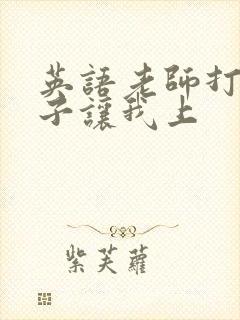 英語老師打
子讓我上
紫芙蘿